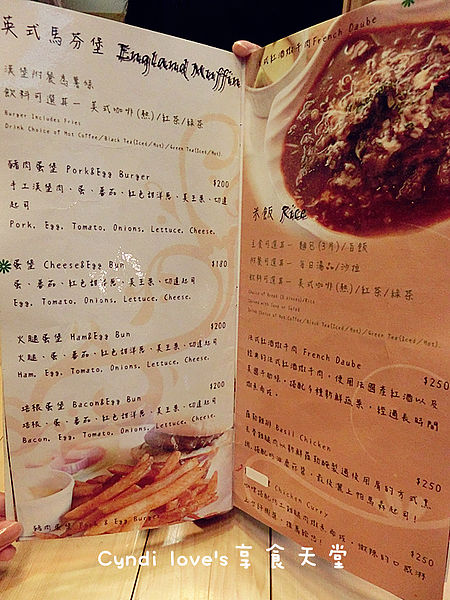 英式馬芬堡 England Muffin
漢堡附餐為薯條
飲料可選其一 美式咖啡(熱)/紅茶/綠茶
Burger Includes Fries
Drink Choice of Hot Coffee/Black Tea(Iced/Hot)/Green Tea(Iced/Hot)
豬肉蛋堡 Pork&Egg Burger $200
手工漢堡肉、蛋、番茄、紅色甜洋蔥、美生菜、切達
起司
Pork, Egg, Tomato, Onions, Lettuce, Cheese.
蛋堡 Cheese&Egg Bun $180
蛋、番茄、紅色甜洋蔥、美生菜、切達起司
Egg, Tomato, Onions, Lettuce, Cheese.
火腿蛋堡 Ham&Egg Bun $200
火腿、蛋、番茄、紅色甜洋蔥、美生菜、切達起司
Ham, Egg, Tomato, Onions, Lettuce, Cheese.
培根蛋堡 Bacon&Egg Bun $200
培根、蛋、番茄、紅色甜洋蔥、美生菜、切達起司
Bacon, Egg, Tomato, Onions, Lettuce, Cheese.
豬肉蛋堡 Pork & Egg Burger
法式紅酒燉牛肉 French Daube
米飯 Rice
主食可選其一 麵包(3片)/白飯
附餐可選其一 每日湯品/沙拉
飲料可選其一 美式咖啡(熱)/紅茶/綠茶
Choice of Bread (3 slices)/Rice
Served with Soup or Salad
Drink Choice of Hot Coffee/Black Tea(Iced/Hot)/Green Tea(Iced/Hot).
法式紅酒燉牛肉 French Daube $250
經典的法式紅酒燉牛肉，使用法國產紅酒以及
美國牛肋條，搭配多種新鮮蔬菜，經過長時間
燉煮而成。
羅勒雞肉 Basil Chicken $250
Chicken Curry $250
Cyndi love's享食天堂